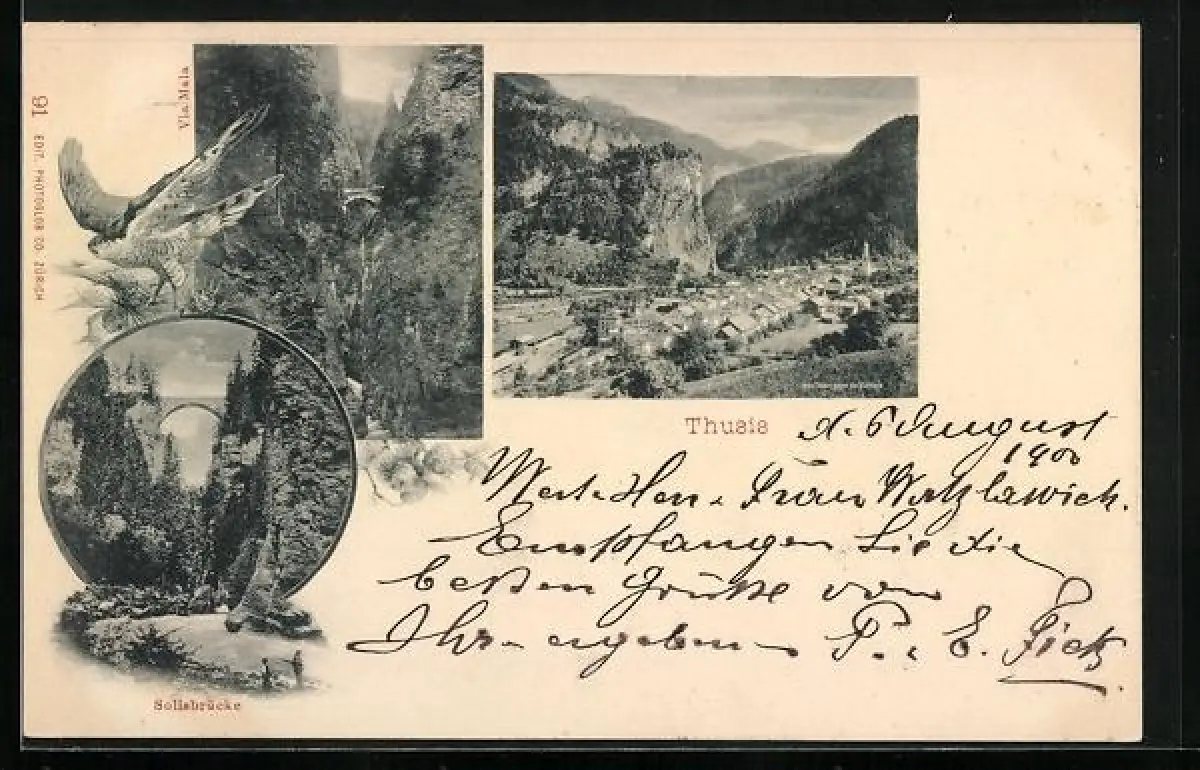 Via Mala
91 EDIT. PHOTOGLOB CO. ZÜRICH
Thusis d. 6 August
1900
Werte Herr u. Frau Watzlawick.
Empfangen Sie die
besten Grüsse von
Ihren ergebenen P. u. E. Fick
Solisbrücke